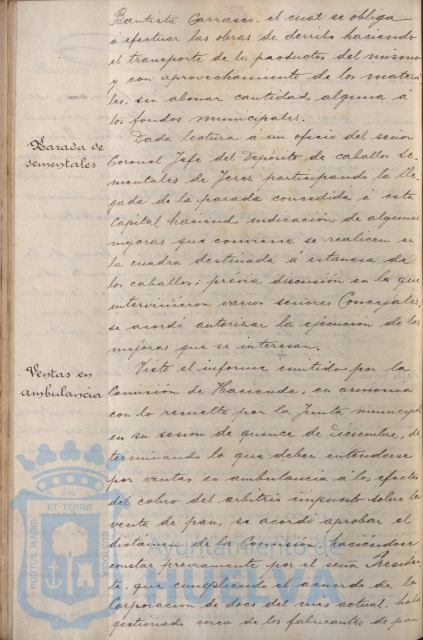 Bautista Carrasco, el cual se obliga
a efectuar las obras de derribo haciendo
el transporte de los productos del mismo
y con aprovechamiento de los materia
les, sin abonar cantidad alguna á
los fondos municipales.
Parada de
sementales
Dada lectura á un oficio del señor
Coronel Jefe del Depósito de caballos Se-
mentales de Jerez participando la lle
gada de la parada concedida á esta
Capital haciendo indicación de algunas
mejoras que conviene se realicen en
la cuadra destinada á estancia de
los caballos; previa discusión en la que
intervinieron varios señores Concejales,
se acordó autorizar la ejecución de las
mejoras que se interesan.
Ventas en
ambulancia
Visto el informe emitido por la
Comisión de Hacienda, en armonia
con lo resuelto por la Junta municipal
en su sesion de quince de Diciembre, de
terminando lo que deben entenderse
por ventas en ambulancia á los efectos
del cobro del arbitrio impuesto sobre la
venta de pan, se acordó aprobar el
dictamen de la Comisión haciéndose
constar previamente por el señor Presiden
te, que cumpliendo el acuerdo de la
Corporacion de doce del mes actual, había
gestionado cerca de los fabricantes de pan
PORTUS MARIS
ET TERRÆ
CUSTODIA
Ayuntamiento de
HUELVA